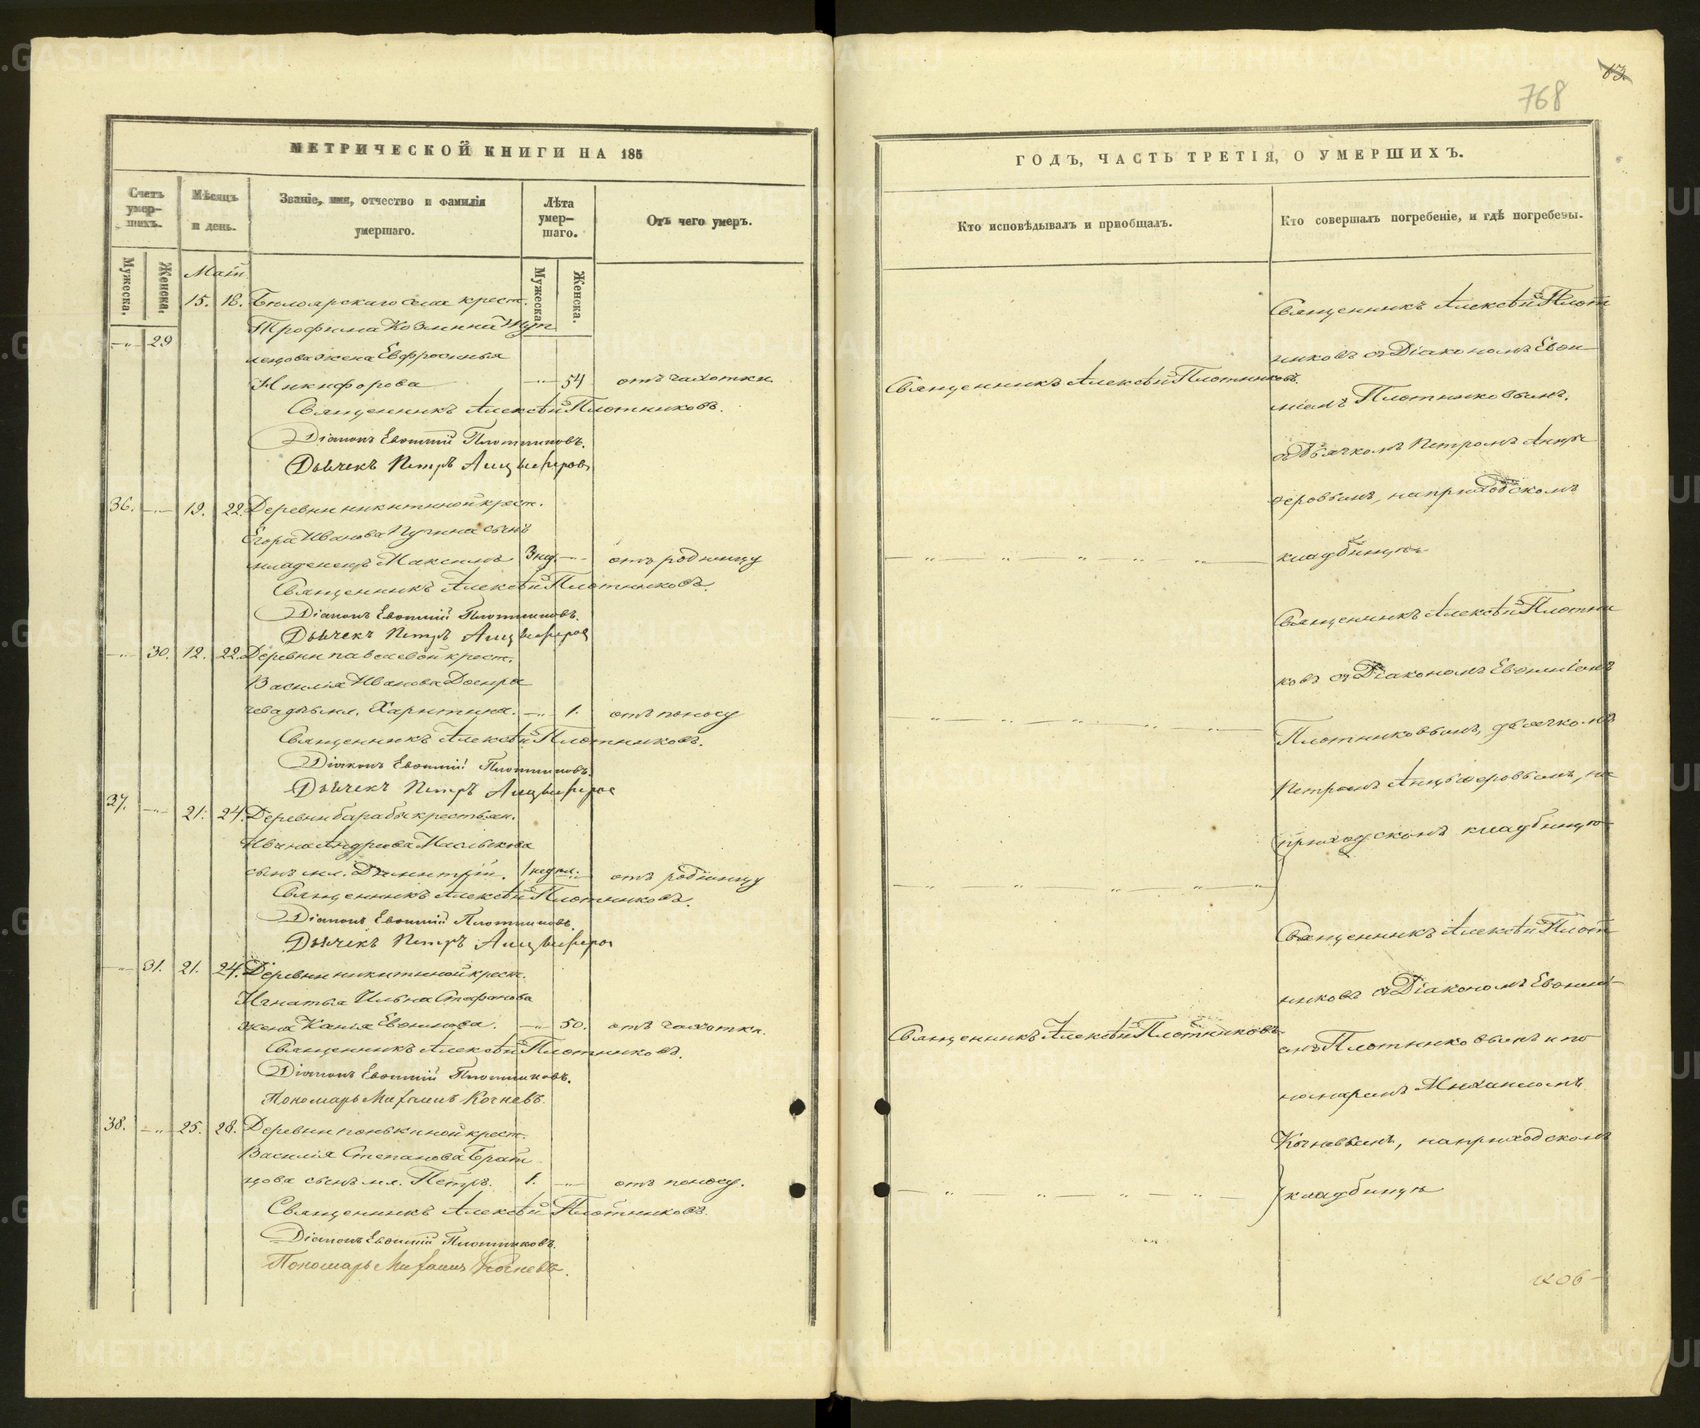 МЕТРИЧЕСКОЙ КНИГИ НА 185
Счетъ умер-шихъ.
Мѣсяцъ и день.
Званіе, имя, отчество и фамилія умершаго.
Лѣта умер-шаго.
Отъ чего умеръ.
Мужеска.
Женска.
Мужеска.
Женска.
Маій
29 15. 18. Белоярскаго села крест.
Трофима Козмина
жена Евфросинья
Никифорова 54 отъ чахотки.
Священникъ Алексѣй Плотниковъ.
Діаконъ Евѳимій Плотниковъ.
Дьячекъ Петръ Анцыферовъ
36. 19. 22. Деревни никитиной крест.
Егора Иванова сынъ
младенецъ Максимъ 3 нед. отъ родимцу
Священникъ Алексѣй Плотниковъ.
Діаконъ Евѳимій Плотниковъ.
Дьячекъ Петръ Анцыферовъ
30. 19. 22. Деревни крест.
Василія Иванова
мл. Харитина. 1. отъ поносу
Священникъ Алексѣй Плотниковъ.
Діаконъ Евѳимій Плотниковъ.
Дьячекъ Петръ Анцыферов
37. 21. 24. Деревни барабы крестьян.
Ивана Андреева
сынъ мл. Димитрій. 1 недел. отъ родимцу
Священникъ Алексѣй Плотниковъ.
Діаконъ Евѳимій Плотниковъ.
Дьячекъ Петръ Анцыферов
31. 21. 24. Деревни никитиной крест.
Игнатья Ильина
жена Евѳимова. 50. отъ чахотки.
Священникъ Алексѣй Плотниковъ.
Діаконъ Евѳимій Плотниковъ.
Пономарь Михаилъ Кочневъ.
38. 25. 28. Деревни крест.
Василія Степанова
сынъ мл. Петръ. 1. отъ поносу.
Священникъ Алексѣй Плотниковъ.
Діаконъ Евѳимій Плотниковъ.
Пономарь Михаилъ Кочневъ.
768
ГОДЪ, ЧАСТЬ ТРЕТІЯ, О УМЕРШИХЪ.
Кто исповѣдывалъ и пріобщалъ.
Кто совершалъ погребеніе, и гдѣ погребены.
Священникъ Алексѣй Плотниковъ.
Священникъ Алексѣй Плот
никовъ съ Діакономъ Евѳи
міемъ Плотниковымъ.
Дьячкомъ Петромъ Анцы
феровымъ, на приходскомъ
кладбищѣ
Священникъ Алексѣй Плотни
ковъ съ Діакономъ Евѳиміемъ
Плотниковымъ, дьячкомъ
Петромъ Анцыферовымъ, на
приходскомъ кладбищѣ
Священникъ Алексѣй Плотниковъ.
Священникъ Алексѣй Плот
никовъ съ Діакономъ Евѳими
емъ Плотниковымъ и по
номаремъ Михаиломъ
Кочневымъ, на приходскомъ
кладбищѣ
METRIKI.GASO-URAL.RU